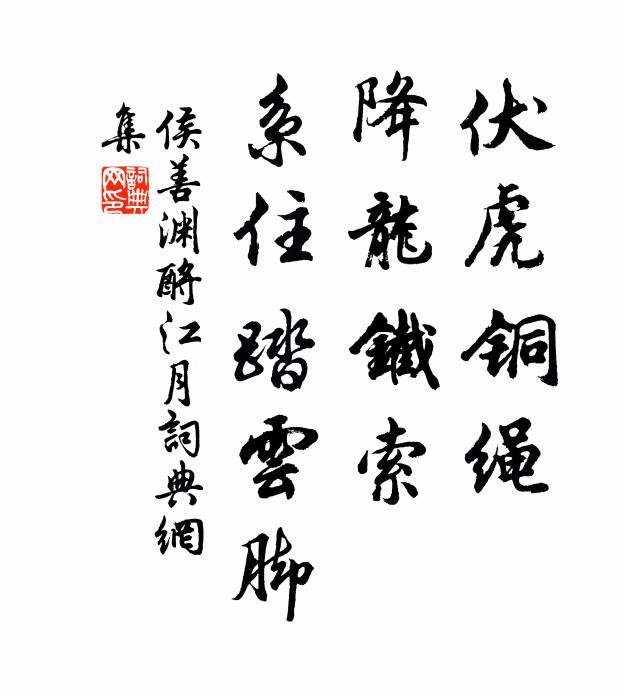 伏虎铜绳
降龍鐵索
系住踏雲脚
侯善渊酹江月詞典網
集
詞典网印